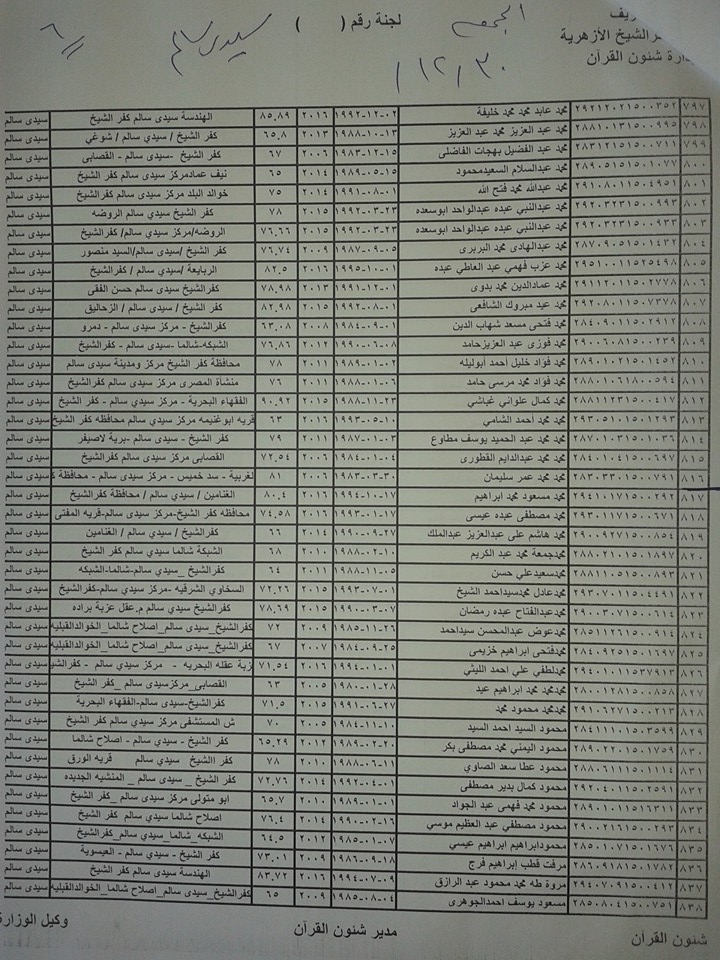 ـريف
لجنة رقم ( ) الجمعة سيدي سالم ٦
ـفر الشيخ الأزهرية
ـدارة شئون القرآن ٣٠ / ١٢ /
٧٩٧ ٢٩٢١٢٠٢١٥٠٠٣٥٢ محمد عابد محمد محمد خليفة ١٩٩٢-١٢-٠٢ ٢٠١٦ ٨٥.٨٩ الهندسة سيدى سالم كفر الشيخ سيدى سالم
٧٩٨ ٢٨٨١٠١٣١٥٠٠٩٩٥ محمد عبد العزيز محمد عبد العزيز ١٩٨٨-١٠-١٣ ٢٠١٣ ٦٥.٨ كفر الشيخ / سيدي سالم / شوغي سيدى سالم
٧٩٩ ٢٨٣١٢١٥١٥٠٠٧١١ محمد عبد الفضيل بهجات الفاضلى ١٩٨٣-١٢-١٥ ٢٠٠٦ ٦٧ كفر الشيخ -سيدى سالم - القصابى سيدى سالم
٨٠٠ ٢٨٩٠٥١٥١٥٠١٠٧٧ محمد عبدالسلام السعيدمحمود ١٩٨٩-٠٥-١٥ ٢٠١٤ ٦٥ نيف عمادمركز سيدي سالم كفر الشيخ سيدى سالم
٨٠١ ٢٩١٠٨٠١١٥٠٤٩٥١ محمد عبدالله محمد فتح الله ١٩٩١-٠٨-٠١ ٢٠١٤ ٧٥ خوالد البلد مركز سيدي سالم كفر الشيخ سيدى سالم
٨٠٢ ٢٩٢٠٣٢٣١٥٠٠٩٩١ محمد عبدالنبي عبده عبدالواحد ابوسعده ١٩٩٢-٠٣-٢٣ ٢٠١٥ ٧٨ كفر الشيخ سيدي سالم الروضه سيدى سالم
٨٠٣ ٢٩٢٠٣٢٣١٥٠٠٩٣٣ محمد عبدالنبي عبده عبدالواحد ابوسعده ١٩٩٢-٠٣-٢٣ ٢٠١٥ ٧٦.٦٦ الروضه/مركز سيدي سالم/ كفرالشيخ سيدى سالم
٨٠٤ ٢٨٧٠٩٠٥١٥٠١٤٣٢ محمد عبدالهادى محمد البربرى ١٩٨٧-٠٩-٠٥ ٢٠٠٩ ٧٦.٧٤ كفر الشيخ /سيدي سالم/السيد منصور سيدى سالم
٨٠٥ ٢٩٥١٠٠١١٥٢٥٤٩٨ محمد عزب فهمي عبد العاطي عبده ١٩٩٥-١٠-٠١ ٢٠١٦ ٨٢.٥ الربايعة /سيدي سالم / كفرالشيخ سيدى سالم
٨٠٦ ٢٩١١٢٠١١٥٠٢٧٧٨ محمد عمادالدين محمد بدوى ١٩٩١-١٢-٠١ ٢٠١٣ ٧٨.٩٨ كفرالشيخ سيدي سالم حسن الفقى سيدى سالم
٨٠٧ ٢٩٢٠٨٠١١٥٠٧٣٧٨ محمد عيد مبروك الشافعى ١٩٩٢-٠٨-٠١ ٢٠١٥ ٨٢.٩٨ كفر الشيخ / سيدي سالم / الزحاليق سيدى سالم
٨٠٨ ٢٨٤٠٩٠١١٥٠٢٩١٢ محمد فتحى مسعد شهاب الدين ١٩٨٤-٠٩-٠١ ٢٠٠٨ ٦٣.٠٨ كفرالشيخ - مركز سيدي سالم - دمرو سيدى سالم
٨٠٩ ٢٩٠٠٦٠٨١٥٠٠٢٣٩ محمد فوزى عبد العزيزحامد ١٩٩٠-٠٦-٠٨ ٢٠١٢ ٧٦.٨٦ الشبكه-شالما -سيدي سالم - كفرالشيخ سيدى سالم
٨١٠ ٢٨٩٠١٠٢١٥٠١٤٥٢ محمد فواد خليل أحمد أبوليله ١٩٨٩-٠١-٠٢ ٢٠١١ ٧٨ محافظة كفر الشيخ مركز ومدينة سيدي سالم سيدى سالم
٨١١ ٢٨٨٠١٠٦١٨٠٠٥٩٤ محمد فواد محمد مرسى حامد ١٩٨٨-٠١-٠٦ ٢٠١١ ٧٦ منشأة المصرى مركز سيدي سالم كفرالشيخ سيدى سالم
٨١٢ ٢٨٨١١٢٣١٥٠٠٤١٧ محمد كمال علواني غباشي ١٩٨٨-١١-٢٣ ٢٠١٥ ٩٠.٩٢ الفقهاء البحرية - مركز سيدي سالم - كفر الشيخ سيدى سالم
٨١٣ ٢٩٣٠٥١٠١٥٠١٢٩٣ محمد محمد أحمد الشامي ١٩٩٣-٠٥-١٠ ٢٠١٦ ٦٣ قريه ابوغنيمه مركز سيدي سالم محافظه كفر الشيخ سيدى سالم
٨١٤ ٢٨٧٠١٠٣١٥٠١٠٣٦ محمد محمد عبد الحميد يوسف مطاوع ١٩٨٧-٠١-٠٣ ٢٠١١ ٧٩ كفر الشيخ - سيدي سالم -برية لاصيفر سيدى سالم
٨١٥ ٢٨٤٠١٠٤١٥٠٠٦٩٧ محمد محمد عبدالدايم القطورى ١٩٨٤-٠١-٠٤ ٢٠٠٦ ٧٢.٥٤ القصابى مركز سيدي سالم كفرالشيخ سيدى سالم
٨١٦ ٢٨٣٠٣٣٠١٥٠٠٧٩١ محمد محمد عمر سليمان ١٩٨٣-٠٣-٣٠ ٢٠٠٦ ٨١ لغربية - سد خميس - مركز سيدي سالم - محافظة ك سيدى سالم
٨١٧ ٢٩٤١٠١٧١٥٠٠٢٩٢ محمد مسعود محمد ابراهيم ١٩٩٤-١٠-١٧ ٢٠١٦ ٨٠.٤ الغنامين / سيدي سالم / محافظة كفرالشيخ سيدى سالم
٨١٨ ٢٩٣٠١١٧١٥٠٠٦٧١ محمد مصطفى عبده عيسى ١٩٩٣-٠١-١٧ ٢٠١٦ ٧٤.٥٨ محافظه كفر الشيخ-مركز سيدي سالم-قريه المفتى سيدى سالم
٨١٩ ٢٩٠٠٩٢٧١٥٠٠٨٥٤ محمد هاشم على عبدالعزيز عبدالملك ١٩٩٠-٠٩-٢٧ ٢٠١٤ ٦٦ كفرالشيخ / سيدي سالم / الغنامين سيدى سالم
٨٢٠ ٢٨٨٠٢١٠١٥٠١٨٩٧ محمدجمعة محمد عبد الكريم ١٩٨٨-٠٢-١٠ ٢٠١٠ ٦٨ الشبكة شالما سيدي سالم كفر الشيخ سيدى سالم
٨٢١ ٢٨٨١١٠٥١٥٠٠٨٩٣ محمدسعيدعلي حسن ١٩٨٨-١١-٠٥ ٢٠١١ ٦٤ كفر الشيخ _سيدي سالم-شالما-الشبكه سيدى سالم
٨٢٢ ٢٩٣٠٧٠١١٥٠٤٤٩١ محمدعادل محمدسيداحمد الشيخ ١٩٩٣-٠٧-٠١ ٢٠١٥ ٧٢.٢٦ السخاوي الشرقيه -مركز سيدي سالم-كفرالشيخ سيدى سالم
٨٢٣ ٢٩٠٠٣٠٧١٥٠٠٦١٤ محمدعبدالفتاح عبده رمضان ١٩٩٠-٠٣-٠٧ ٢٠١٥ ٧٨.٦٩ كفرالشيخ سيدي سالم م.عقل عزبة براده سيدى سالم
٨٢٤ ٢٨٥١١٢٦١٥٠٠٩١٤ محمدعوض عبدالمحسن سيداحمد ١٩٨٥-١١-٢٦ ٢٠٠٩ ٧٢ كفرالشيخ_سيدى سالم_اصلاح شالما_الخوالدالقبليه سيدى سالم
٨٢٥ ٢٨٤٠٩٢٥١٥٠١٦٩١ محمدفتحى ابراهيم خزيمى ١٩٨٤-٠٩-٢٥ ٢٠٠٧ ٦٧ كفرالشيخ_سيدى سالم_اصلاح شالما_الخوالدالقبليه سيدى سالم
٨٢٦ ٢٩٤٠١٠١١٥٣٧٩١٣ محمدلطفي علي احمد الليثي ١٩٩٤-٠١-٠١ ٢٠١٦ ٧١.٥٤ زبة عقله البحريه - مركز سيدي سالم - كفرالشي سيدى سالم
٨٢٧ ٢٨٠٠١٢٨١٥٠٠٨٥٨ محمدمحمد محمد ابراهيم عيد ١٩٨٠-٠١-٢٨ ٢٠٠٥ ٦٣ القصابى_مركزسيدي سالم _كفر الشيخ سيدى سالم
٨٢٨ ٢٩١٠٦٢٧١٥٠٠٢١٣ محمدمحمد محمود محمد ١٩٩١-٠٦-٢٧ ٢٠١٥ ٧١.٥ كفرالشيخ-سيدي سالم-الفقهاء البحرية سيدى سالم
٨٢٩ ٢٨٤١١١٠١٥٠٣٥٩٩ محمود السيد احمد السيد ١٩٨٤-١١-١٠ ٢٠٠٥ ٧٠ ش المستشفى مركز سيدي سالم كفر الشيخ سيدى سالم
٨٣٠ ٢٨٩٠٢٢٠١٥٠١٧٥٩ محمود اليمني محمد مصطفى بكر ١٩٨٩-٠٢-٢٠ ٢٠١٢ ٦٥.٢٩ كفر الشيخ - سيدي سالم - اصلاح شالما سيدى سالم
٨٣١ ٢٨٨٠٦١١١٥٠١١١٤ محمود عطا سعد الصاوي ١٩٨٨-٠٦-١١ ٢٠١٠ ٧٨ كفر االشيخ سيدي سالم قريه الورق سيدى سالم
٨٣٢ ٢٩٢٠٤٠١١٥٠٢٥٩١ محمود كمال بدير مصطفى ١٩٩٢-٠٤-٠١ ٢٠١٤ ٧٢.٧٦ كفر الشيخ _ سيدي سالم _ المنشيه الجديده سيدى سالم
٨٣٣ ٢٨٩٠١٠١١٥١٦٣١١ محمود محمد فهمى عبد الجواد ١٩٨٩-٠١-٠١ ٢٠١٠ ٦٥.٧ ابو متولى مركز سيدي سالم _ كفر الشيخ سيدى سالم
٨٣٤ ٢٩٠٠٢١٦١٥٠٠٢٩٣ محمود مصطفي عبد العظيم موسي ١٩٩٠-٠٢-١٦ ٢٠١٤ ٧٦.٤ اصلاح شالما سيدي سالم كفر الشيخ سيدى سالم
٨٣٥ ٢٨٥٠١٠٧١٥٠١٦٧٦ محمودابراهيم ابراهيم عيسي ١٩٨٥-٠١-٠٧ ٢٠١٢ ٦٤.٥ الشبكه_شالما_سيدي سالم_كفرالشيخ سيدى سالم
٨٣٦ ٢٨٦٠٩١٨١٥٠١٧٨٢ مرفت قطب إبراهيم فرج ١٩٨٦-٠٩-١٨ ٢٠٠٩ ٧٣.٠١ كفر الشيخ - سيدي سالم - العيسوية سيدى سالم
٨٣٧ ٢٩٤٠٧٠٩١٥٠٠٤١٢ مروة طه محمد محمود عبد الرازق ١٩٩٤-٠٧-٠٩ ٢٠١٦ ٨٣.٧٢ الهندسة سيدي سالم كفر الشيخ سيدى سالم
٨٣٨ ٢٨٥٠٨٠٤١٥٠٠٧٥١ مسعود يوسف احمدالجوهرى ١٩٨٥-٠٨-٠٤ ٢٠٠٩ ٦٥ كفرالشيخ_سيدى سالم_اصلاح شالما_الخوالدالقبليه سيدى سالم
شئون القرآن مدير شئون القرآن وكيل الوزارة